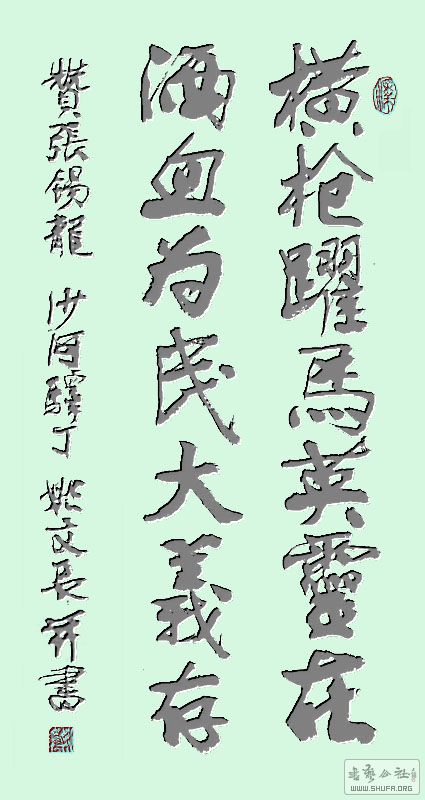 橫枪躍馬英靈在
洒血为民大義存
贊張锡龍 沙河驛丁 姚文長并書
書艺公社
WWW.SHUFA.ORG